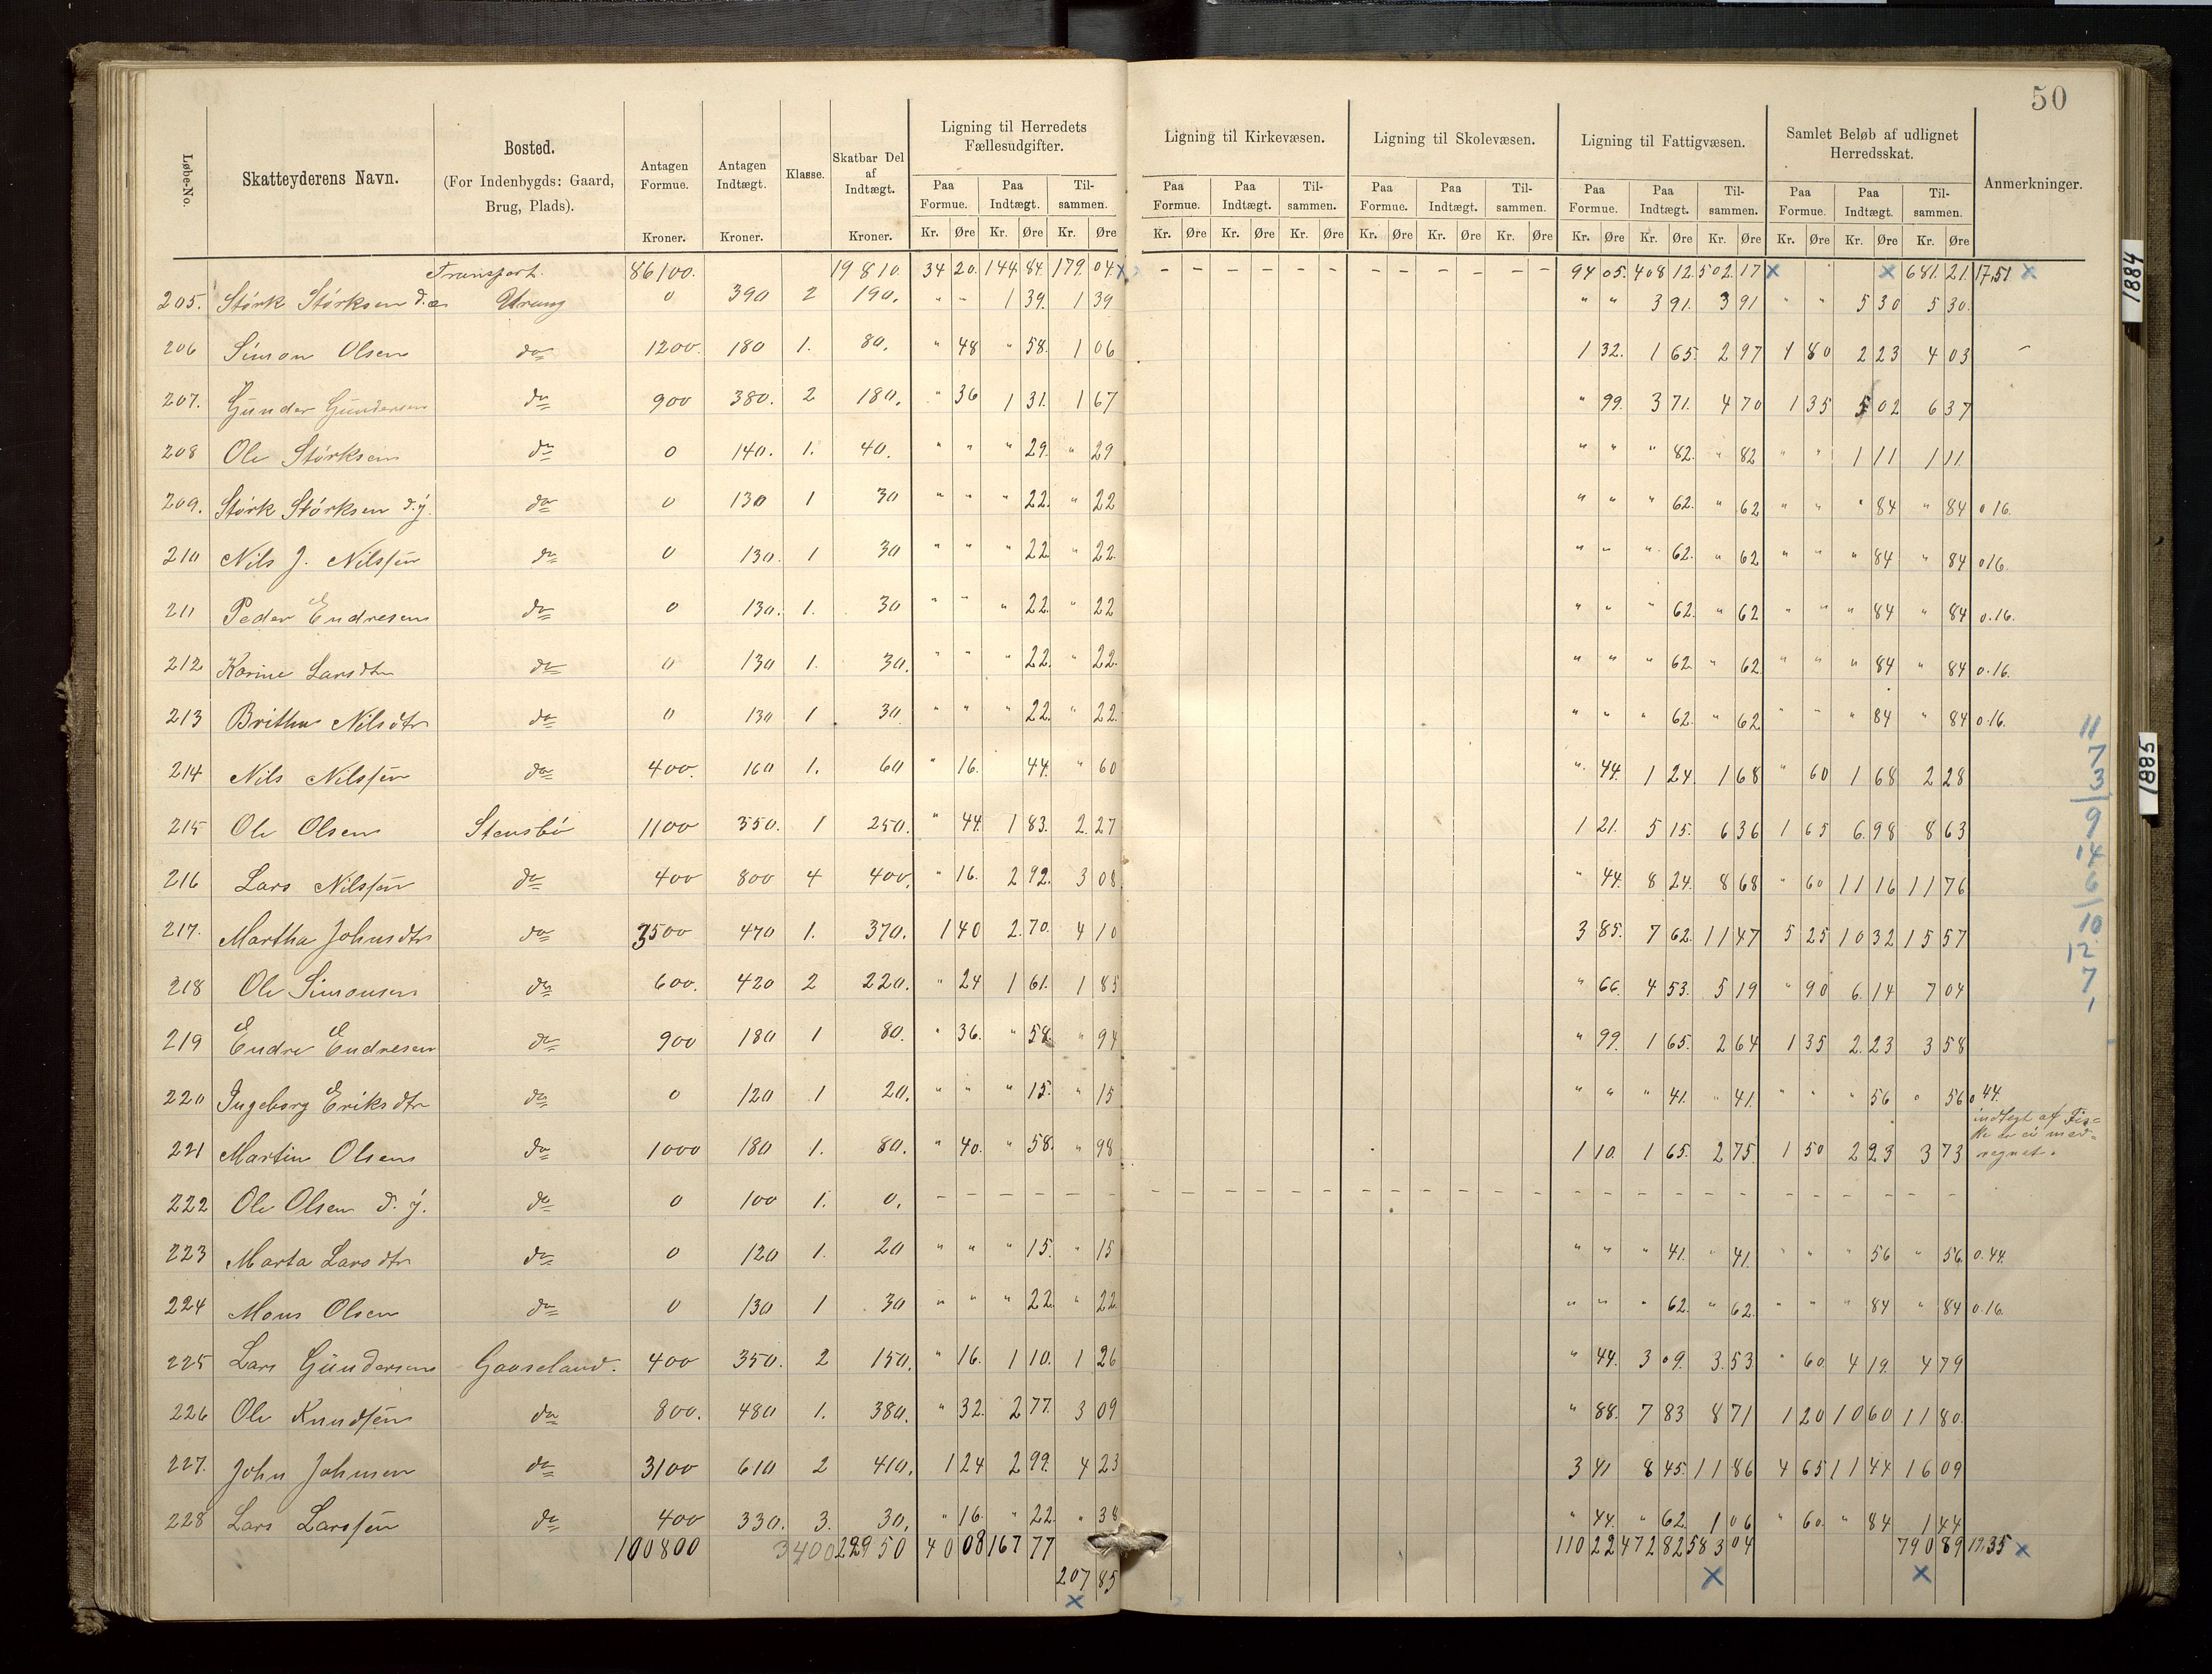 50
Løbe-No.
Skatteyderens Navn.
Bosted.
(For Indenbygds: Gaard, Brug, Plads).
Antagen Formue.
Kroner.
Antagen Indtægt.
Kroner.
Klasse.
Skatbar Del af Indtægt.
Kroner.
Ligning til Herredets Fællesudgifter.
Ligning til Kirkevæsen.
Ligning til Skolevæsen.
Ligning til Fattigvæsen.
Samlet Beløb af udlignet Herredsskat.
Anmerkninger.
Paa Formue. Paa Indtægt. Tilsammen. Paa Formue. Paa Indtægt. Tilsammen. Paa Formue. Paa Indtægt. Tilsammen. Paa Formue. Paa Indtægt. Tilsammen. Paa Formue. Paa Indtægt. Tilsammen.
Kr. Øre Kr. Øre Kr. Øre Kr. Øre Kr. Øre Kr. Øre Kr. Øre Kr. Øre Kr. Øre Kr. Øre Kr. Øre Kr. Øre Kr. Øre Kr. Øre Kr. Øre
Transport. 86100. 19810. 34 20. 144 84. 179. 04 x - - - - - - - - - - - - 94 05. 408 12. 502. 17 x x 681. 21. 17,51 x
205. Størk Størksen d.æ. Urang 0 390 2 190. " - 1 39. 1 39 " " 3 91. 3 91 " " 5 30 5 30.
206 Simon Olsen do 1200. 180 1. 80. " 48 " 58. 1 06 1 32. 1 65. 2 97 1 80 2 23 4 03 -
207. Gunder Gundersen do 900 380. 2 180. " 36 1 31. 1 67 " 99. 3 71. 4 70 1 35 5 02 6 37
208 Ole Størksen do 0 140. 1. 40. " " " 29. " 29 " " " 82. " 82 " " 1 11 1 11.
209. Størk Størksen d.y. do 0 130 1 30 " " " 22. " 22 " " " 62. " 62 " " " 84 " 84 0 16.
210 Nils J. Nilsſen do 0 130. 1 30 " " " 22 " 22. " " " 62. " 62 " " " 84 " 84 0 16.
211 Peder Endresen do 0 130. 1. 30 " " " 22. " 22 " " " 62. " 62 " " " 84 " 84 0.16.
212 Karine Larsdtr do 0 130 1. 30. " " " 22. " 22. " " " 62. " 62 " " " 84 " 84 0.16.
213 Britha Nilsdtr do 0 130 1 30. " " " 22. " 22. " " " 62. " 62 " " " 84 " 84 0.16.
214 Nils Nilsſen do 400. 160 1. 60 " 16. 44. " 60 " 44. 1 24. 1 68 " 60 1 68 2 28
215 Ole Olsen Stensbø 1100 350. 1 250. " 44. 1 83. 2. 27 1 21. 5 15. 6 36 1 65 6. 98 8 63
216 Lars Nilsſen do 400 800 4 400. " 16. 2 92. 3 08 " 44. 8 24. 8 68 " 60 11 16 11 76
217. Martha Johnsdtr do 3500 470 1. 370. 1 40 2. 70. 4 10 3 85. 7 62. 11 47 5 25 10 32 15 57
218 Ole Simonsen do 600. 420 2 220. " 24 1 61. 1 85 " 66. 4 53. 5 19 " 90 6. 14 7 04
219 Endre Endresen do 900 180 1 80. " 36. " 58. " 94 " 99. 1 65. 2 64 1 35 2. 23 3 58
220 Ingeborg Eriksdtr do 0 120 1 20. " " " 15. " 15 " " " 41. " 41. " " " 56 " 56 0 44.
221 Martin Olsen do 1000 180 1. 80. " 40. " 58. " 98 1 10. 1 65. 2 75. 1 50 2 23 3 73
indtegt af Fiske er ei medregnet.
222 Ole Olsen d. y. do 0 100 1. 0. - - - - - - - - - - - - - - - - - - - - - - - - - - - - - -
223 Marta Larsdtr do 0 120 1. 20 " " " 15. " 15 " " " 41. " 41. " " " 56 " 56. 0.44.
224 Mons Olsen do 0 130 1 30 " " " 22. " 22 " " " 62. " 62. " " " 84 " 84 0.16.
225 Lars Gundersen Gaaseland. 400 350. 2 150. " 16. 1 10. 1 26 " 44. 3 09. 3. 53 " 60. 4 19. 4 79
226 Ole Knudsen do 800. 480 1. 380. " 32. 2 77. 3 09 " 88. 7 83 8 71 1 20 10 60 11 80.
227. John Johnsen do 3100 610 2 410. 1 24 2 99. 4 23 3 41 8 45. 11 86 4 65 11 44 16 09
228 Lars Larsſen do 400 330. 3. 30. " 16. " 22. " 38 " 44. " 62. 1 06 " 60. " 84 1 44
100800 3400 22950 40 08 167 77 110 22 472 82 583 04 790 89 17.35 x
207 85
x x x
11
7
3
9
14
6
10
12
7
1
1884
1885